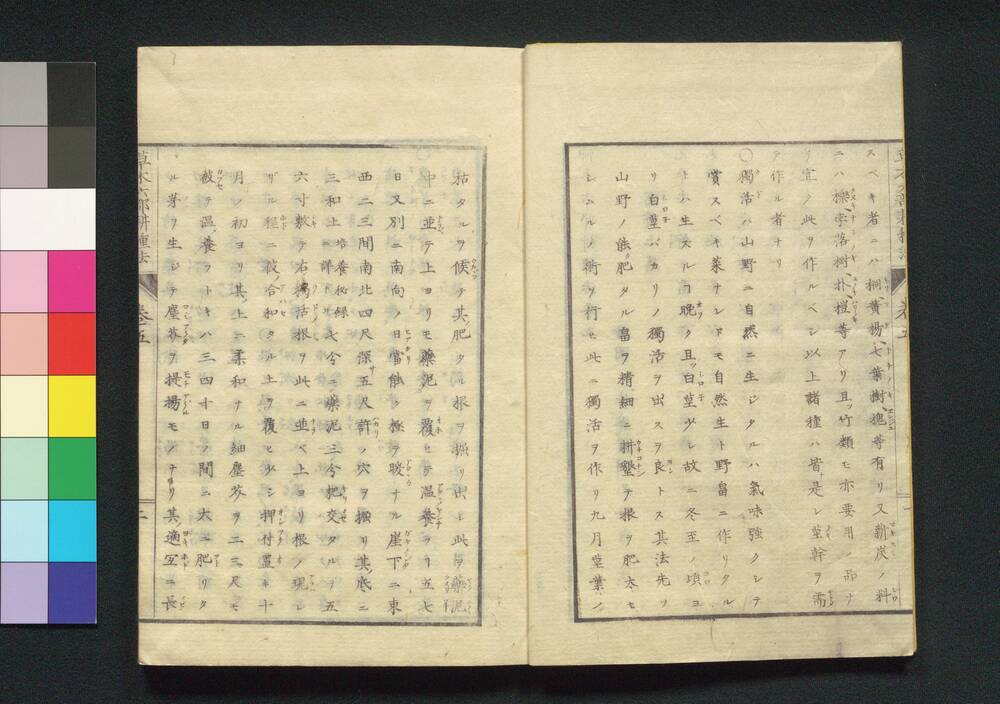 スベキ者ニハ桐黄楊七葉樹槐等有リ又薪炭ノ料
ニハ櫟李落樹朴櫃等アリ且ツ竹類モ亦要用ノ品ナ
リ宜ク此ヲ作ルベシ以上諸種ハ皆是レ莖幹ヲ需
テ作ル者ナリ
〇獨活ハ山野ニ自然ニ生ジタルハ氣味強クシテ
賞スベキ菜ナレドモ自然生ト野畠ニ作リタル
トハ生スルコ晩ク且ツ白莖少シ故ニ冬至ノ頃ヨ
リ白莖バカリノ獨活ヲ出スヲ良トス其法先ツ
山野ノ能肥タル畠ヲ精細ニ耕墾テ根ヲ肥大セ
シムルノ術ヲ行セ此ニ獨活ヲ作リ九月莖葉ノ
枯タルヲ候テ其肥タル根ヲ掘リ出シ此ヲ藥泥
中ニ並テ上ヨリモ藥泥ヲ覆セテ温養ヲ五七
日又別ニ南向ノ日當能シ極テ暖ナル崖下ニ東
西二三間南北四尺深サ五尺許ノ穴ヲ掘リ其底ニ
三和土培養秘録ニ詳ナリ七分ニ藥泥三分把交タルヲ五
六寸敷テ右獨活根ヲ此ニ並べ上ヨリ根ノ現レ
ザル程ニ彼ノ合和タル土ヲ覆ヒ少シ押付置キ十
月ノ初ヨリ其上ニ柔和ナル細塵芥ヲ二三尺モ
被セ温養フトキハ三四十日ノ間ニ大ニ肥リタ
ル芽ヲ生シテ塵芥ヲ提揚モノナリ其適宜ニ長
草木六部耕種法 巻之五